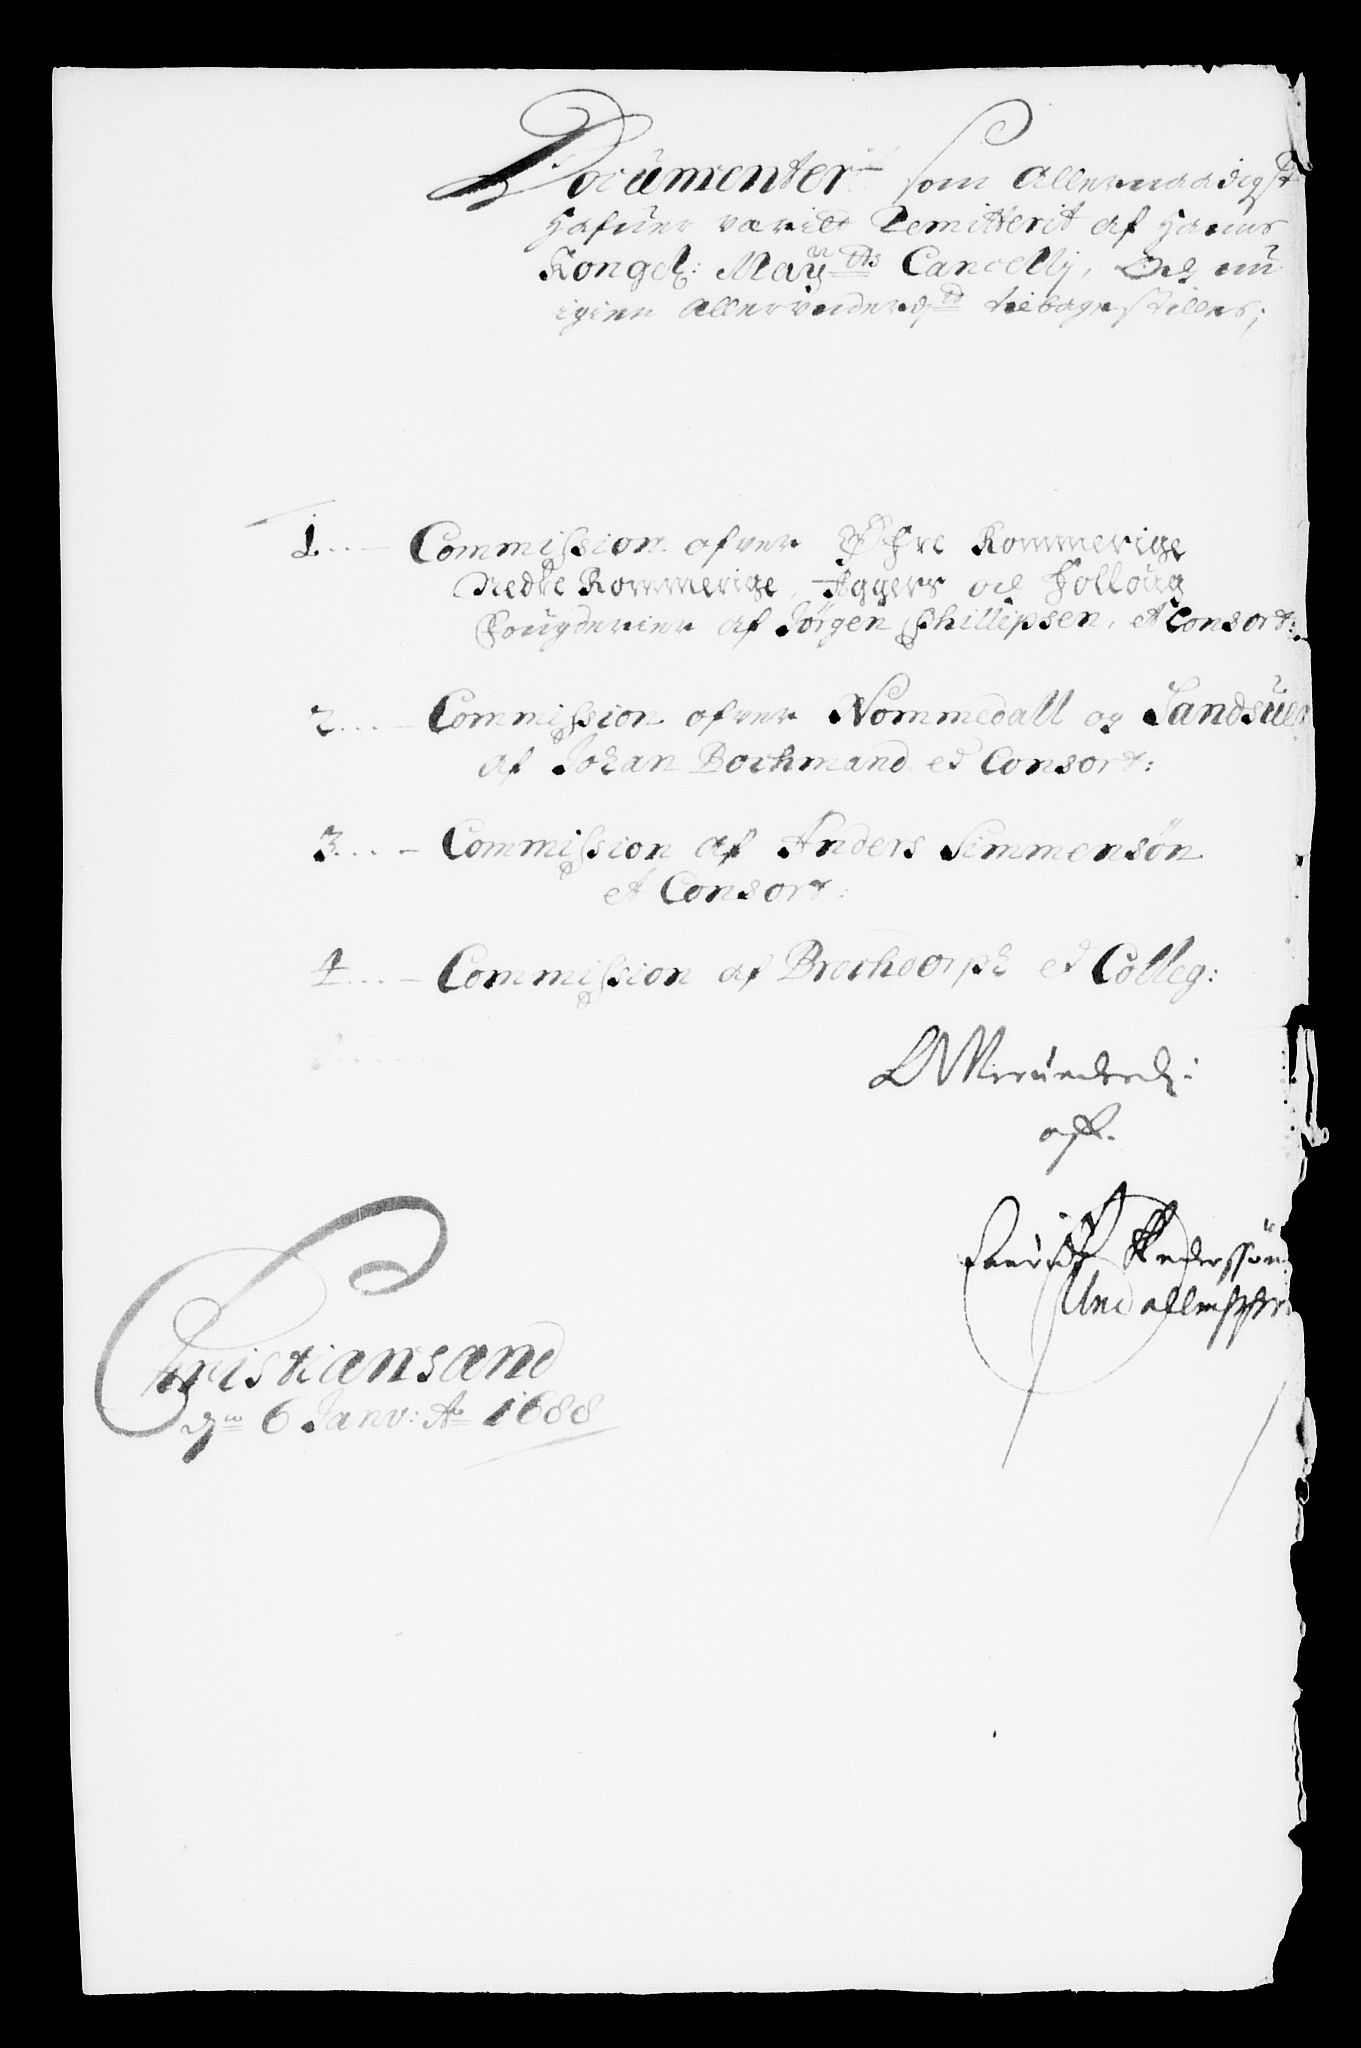 Documenter som Allernaadigst
hafuer værit Remitterit af Hanns
Kongel: May:ts Cancellj, Och nu
igien Allerunderd:st tilbagestilles;
1... Commission ofver Øfre Rommerige
Nedre Rommerige, Aggers och Folloug
Fougderier af Jørgen Phillipsen, et Consort:
2... Commission ofver Nommedall og Sandsuer
af Johan Bochmand et Consort:
3... Commission af Anders Simmensøn
et Consort:
4... Commission af Brochdorph et Colleg:
af.
Laurids Pedersøn
Christiansand
d:n 6 Janv: Ao 1688